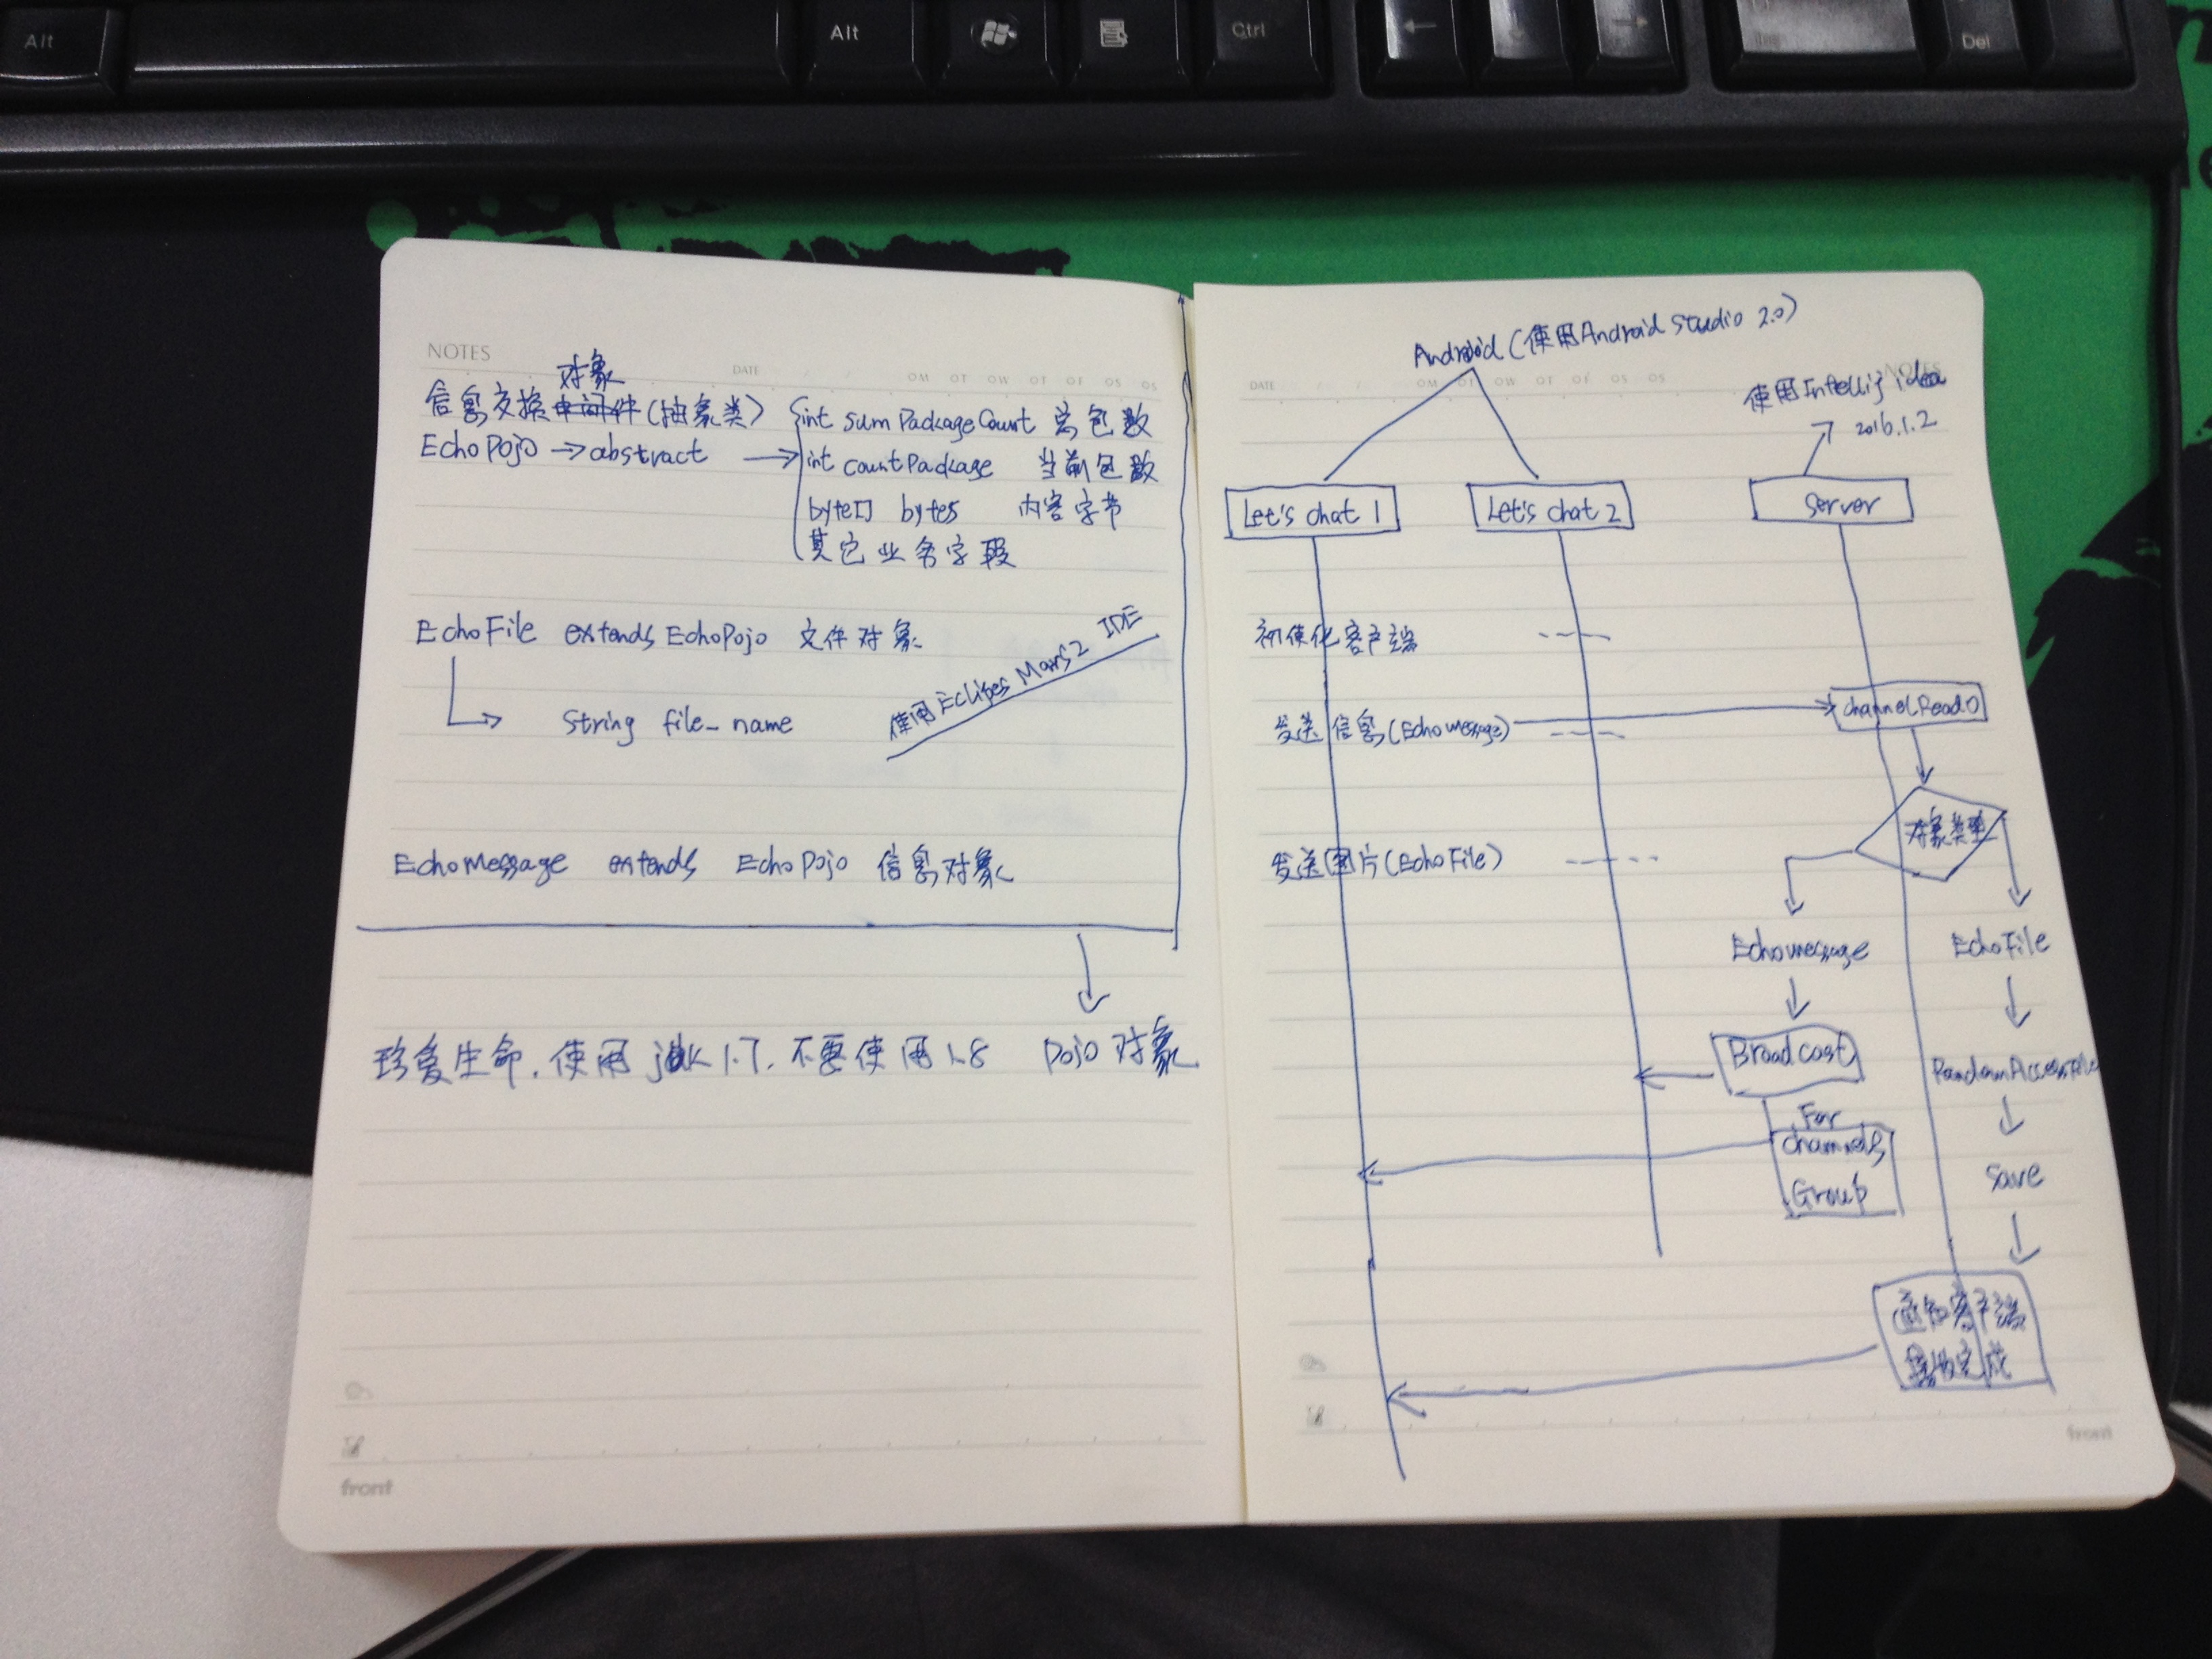 Alt
Alt
Ctrl
Del
NOTES
DATE
对象
信息交换中间件(抽象类)
EchoPojo → abstract →
int sumPackageCount 总包数
int countPackage 当前包数
byte[] bytes 内容字节
其它业务字段
EchoFile extends EchoPojo 文件对象
String file_name
使用Eclipes Mars2 IDE
EchoMessage extends EchoPojo 信息对象
珍爱生命.使用jdk1.7.不要使用1.8 Pojo对象
front
Android(使用Android Studio 2.0)
DATE
NOTES
使用Intellij idea
2016.1.2
Let's chat 1
Let's chat 2
Server
初使化客户端
发送信息(EchoMessage)
channelRead0
对象类型
发送图片(EchoFile)
Echomessage
EchoFile
Broadcast
RandomAccessFile
For
Channels
Group
Save
通知客户端
接收完成
front